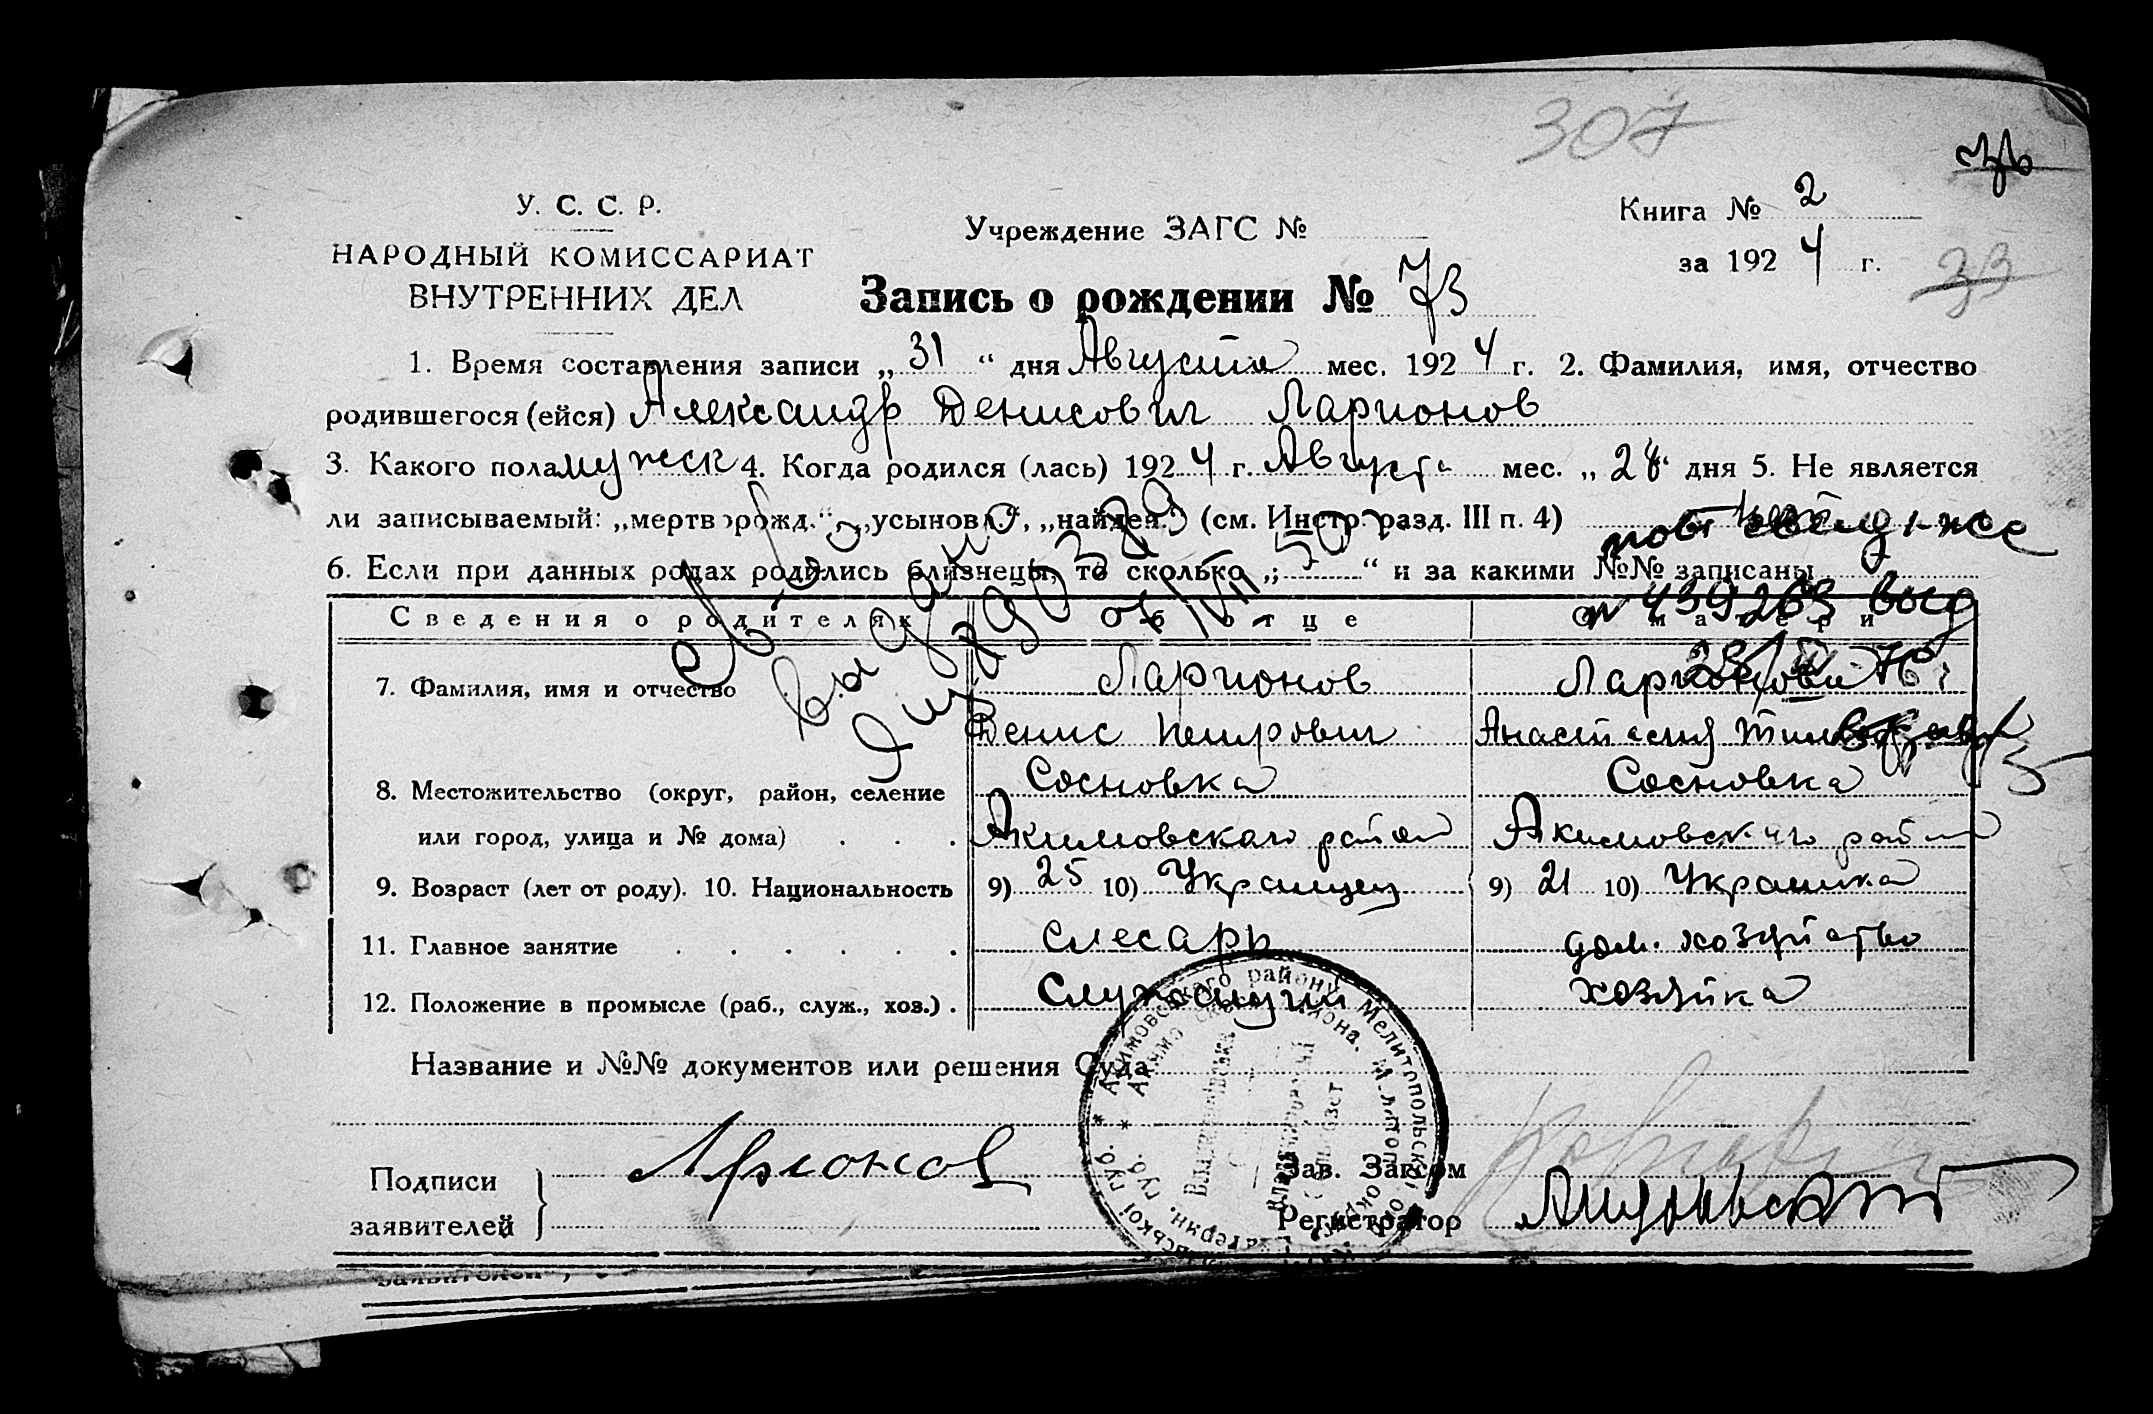 307
У. С. С. Р.
НАРОДНЫЙ КОМИССАРИАТ
ВНУТРЕННИХ ДЕЛ
Учреждение ЗАГС №
Книга № 2
за 1924 г.
33
Запись о рождении № 73
1. Время составления записи „31“ дня Августа мес. 1924 г. 2. Фамилия, имя, отчество
родившегося (ейся) Александр Денисович Ларионов
3. Какого пола мужск 4. Когда родился (лась) 1924 г. Августа мес. „28“ дня 5. Не является
ли записываемый: „мертворожд.“, „усыновл.“, „найден.“ (см. Инстр. разд. III п. 4)
6. Если при данных родах родились близнецы, то сколько „ “ и за какими №№ записаны
Сведения о родителях
О б о т ц е
О м а т е р и
7. Фамилия, имя и отчество
Ларионов
Денис Петрович
Ларионова
Анастасия
8. Местожительство (округ, район, селение
или город, улица и № дома) . . .
Сосновка
Акимовского района
Сосновка
Акимовского района
9. Возраст (лет от роду). 10. Национальность
9) 25 10) Украинец
9) 21 10) Украинка
11. Главное занятие . . . . . .
Слесарь
дом. хозяйство
12. Положение в промысле (раб., служ., хоз.) .
Служащий
хозяйка
Название и №№ документов или решения Суда
Подписи
заявителей
Зав. Загсом
Регистратор
выдано
повт
№ 439263